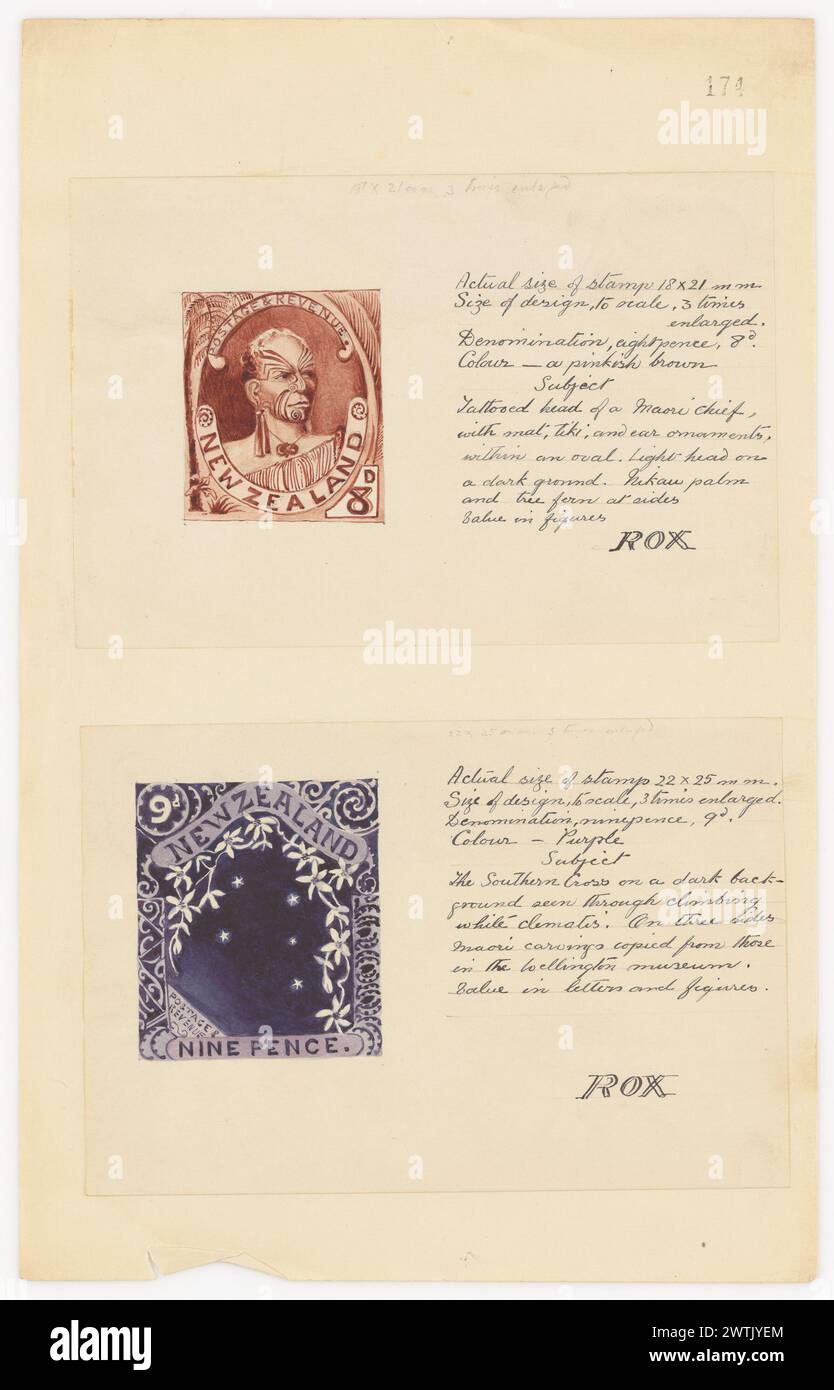 174
3 times enlarged
POSTAGE & REVENUE.
NEW ZEALAND
8D
Actual size of stamp 18 x 21 mm
Size of design, to scale, 3 times
enlarged.
Denomination, eightpence, 8d.
Colour — a pinkish brown
Subject
Tattooed head of a Maori chief,
with mat, tiki, and ear ornaments,
within an oval. Light head on
a dark ground. Nikau palm
and tree fern at sides
Value in figures
ROX
22 x 25 mm 3 times enlarged
9d
NEW ZEALAND
POSTAGE &
REVENUE
NINE PENCE.
Actual size of stamp 22 x 25 mm.
Size of design, to scale, 3 times enlarged.
Denomination, ninepence, 9d.
Colour — Purple
Subject
The Southern Cross on a dark back-
ground seen through climbing
white clematis. On three sides
Maori carvings copied from those
in the Wellington museum.
Value in letters and figures.
ROX
a alamy
alamy
Image ID: 2WTJYEM
www.alamy.com